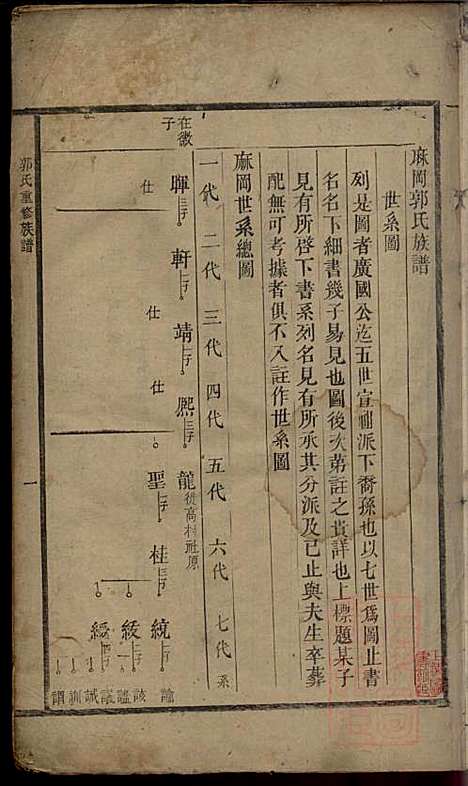 麻岡郭氏族譜
世系圖
列是圖者廣國公迄五世宣𨺚派下裔孫也以七世爲圖止書
名名下細書幾子易見也圖後次第註之貴詳也上標題某子
見有所啓下書系列名見有所承其分派及已止與夫生卒葬
配無可考據者俱不入註作世系圖
麻岡世系總圖
一代 二代 三代 四代 五代 六代 七代 系
在徵子
暉 軒 靖 熈 龍 徙高村社原
聖 桂 統
綾
綬
仕 仕 仕
諭 該 謐 議 誠 訓 謂
郭氏重修族譜
一